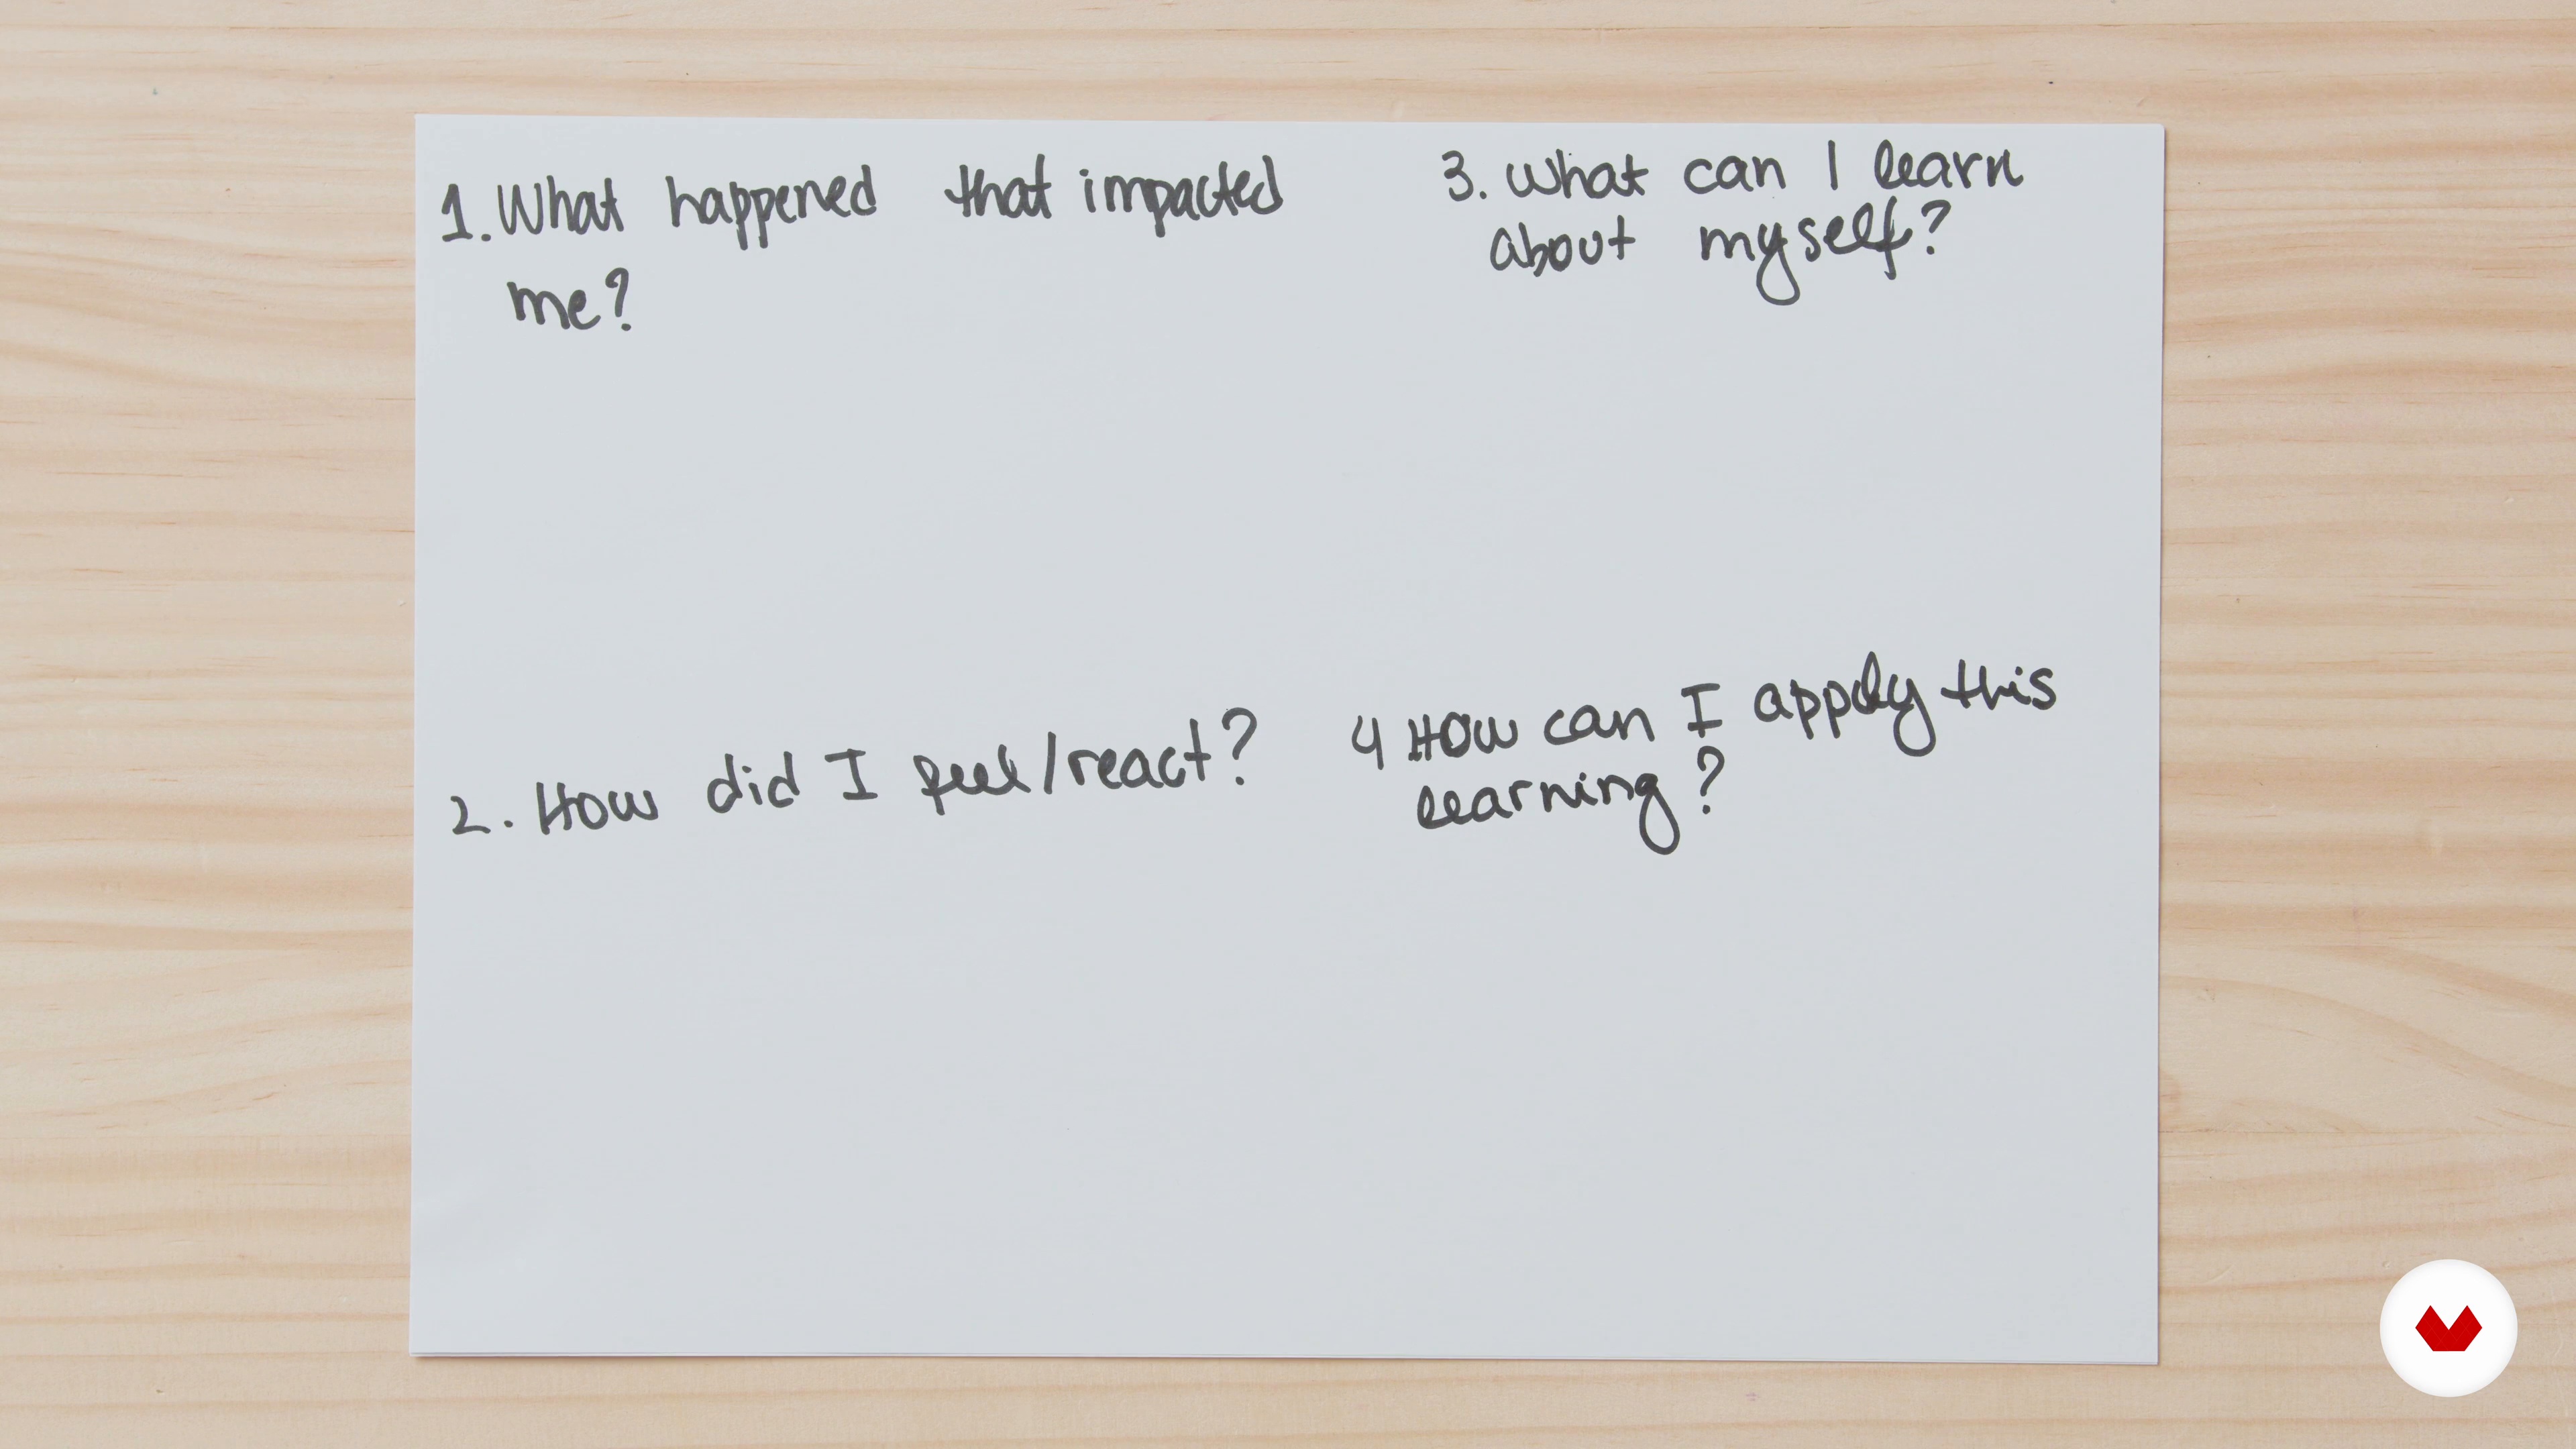 1. What happened that impacted
me?
2. How did I feel/react?
3. What can I learn
about myself?
4 How can I apply this
learning?